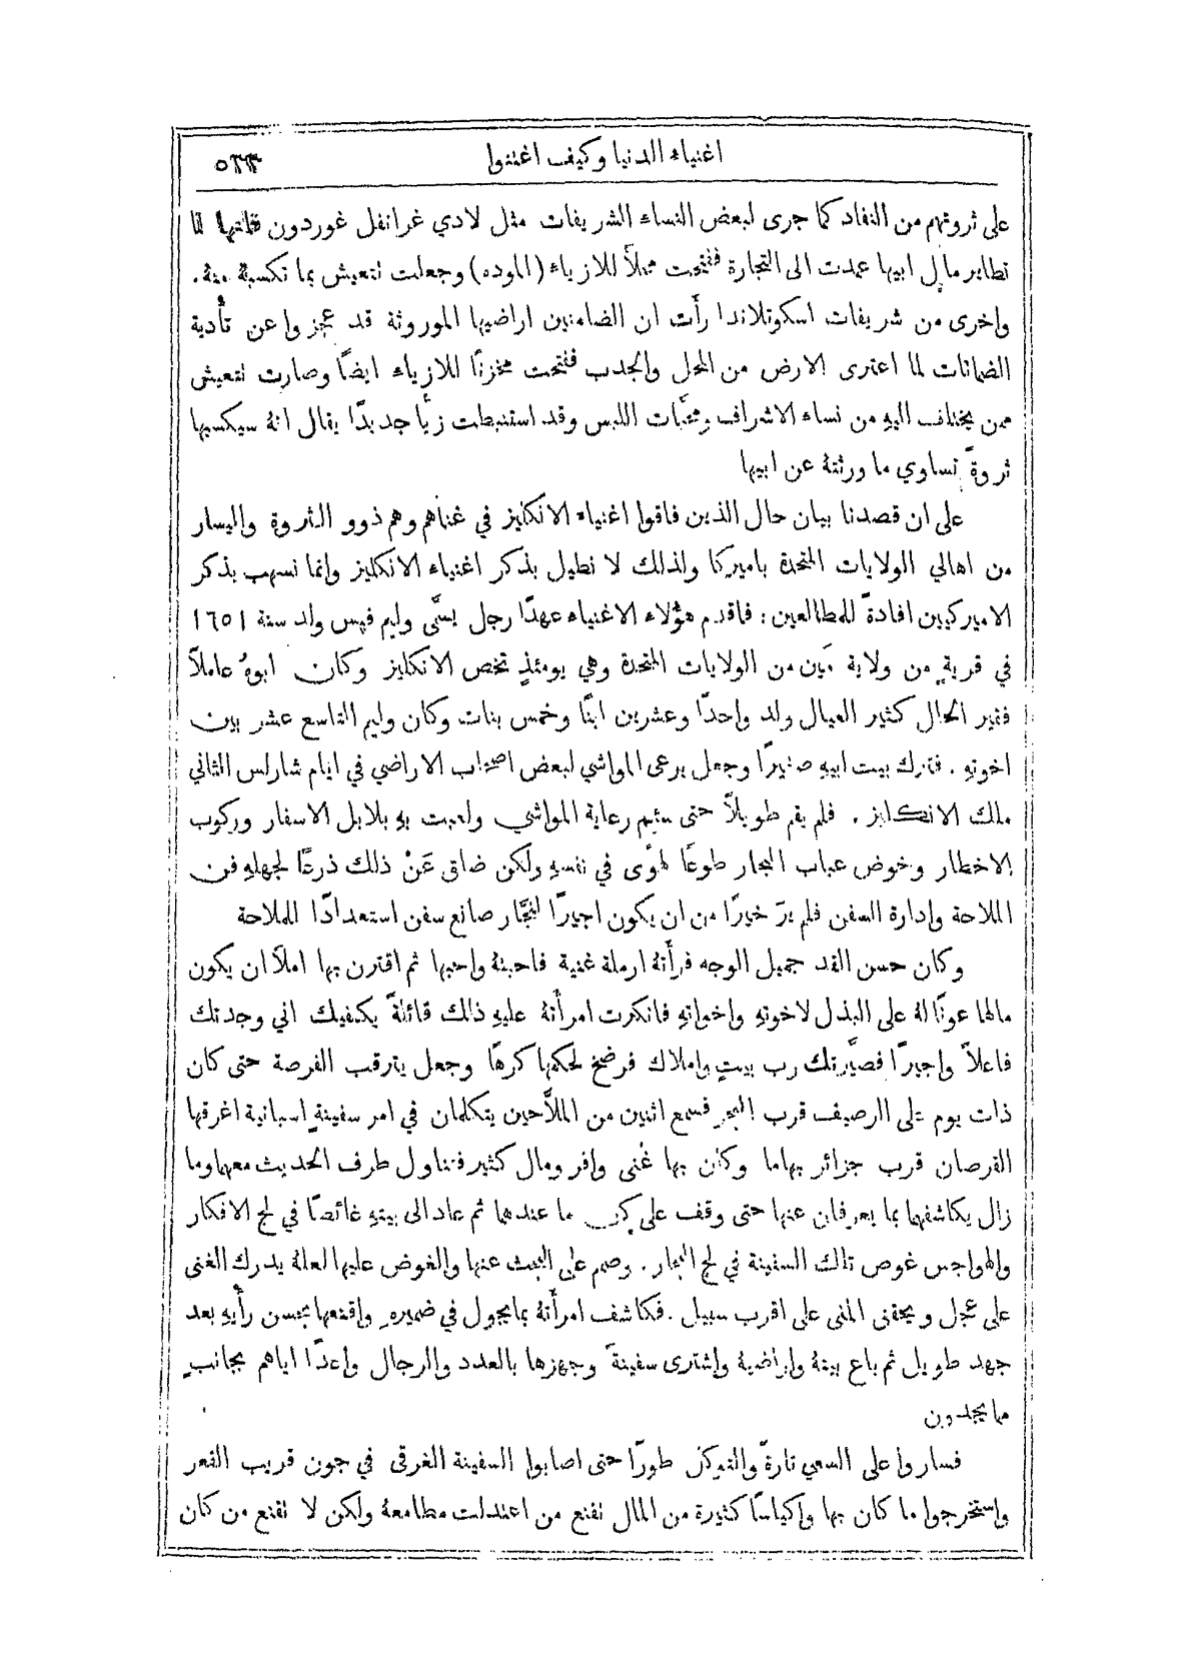 اغنياء الدنيا وكيف اغتنوا
٥٢٣
على ثروتهم من النفاد كما جرى لبعض النساء الشريفات مثل لادي غرانفل غوردون فانها لما
تطاير مال ابيها عمدت الى التجارة ففتحت محلاً للازياء (الموده) وجعلت تتعيش بما تكسبهُ منهُ.
واخرى من شريفات اسكوتلاندا رأَت ان الضامنين اراضيها الموروثة قد عجزوا عن تأدية
الضمانات لما اعترى الارض من المحل والجدب ففتحت مخزنًا للازياء ايضًا وصارت تتعيش
ممن يختلف اليهِ من نساء الاشراف ومحبَّات اللبس وقد استنبطت زيًّا جديدًا يقال انهُ سيكسبها
ثروةً تساوي ما ورثتهُ عن ابيها
على ان قصدنا بيان حال الذين فاقوا اغنياء الانكليز في غناهم وهم ذوو الثروة واليسار
من اهالي الولايات المتحدة باميركا ولذلك لا نطيل بذكر اغنياء الانكليز وانما نسهب بذكر
الاميركيين افادةً للمطالعين: فاقدم هؤلاء الاغنياء عهدًا رجل يسمَّى وليم فيس ولد سنة ١٦٥١
في قريةٍ من ولاية مَين من الولايات المتحدة وهي يومئذٍ تخص الانكليز وكان ابوهُ عاملاً
فقير الحال كثير العيال ولد واحدًا وعشرين ابنًا وخمس بنات وكان وليم التاسع عشر بين
اخوتهِ. فترك بيت ابيهِ صغيرًا وجعل يرعى المواشي لبعض اصحاب الاراضي في ايام شارلس الثاني
ملك الانكليز. فلم يقم طويلاً حتى سئم رعاية المواشي ولعبت بهِ بلابل الاسفار وركوب
الاخطار وخوض عباب البحار طوعًا لهوًى في نفسهِ ولكن ضاق عَنْ ذلك ذرعًا لجهلهِ فن
الملاحة وادارة السفن فلم يرَ خيرًا من ان يكون اجيرًا لنجَّار صانع سفن استعدادًا للملاحة
وكان حسن القد جميل الوجه فرأَتهُ ارملة غنية فاحبتهُ واحبها ثم اقترن بها املاً ان يكون
مالها عونًا لهُ على البذل لاخوتهِ واخواتهِ فانكرت امرأَتهُ عليهِ ذلك قائلةً يكفيك اني وجدتك
فاعلاً واجيرًا فصيَّرتك رب بيتٍ واملاك فرضخ لحكمها كرهًا وجعل يترقب الفرصة حتى كان
ذات يوم على الرصيف قرب البحر فسمع اثنين من الملاَّحين يتكلمان في امر سفينةٍ اسبانية اغرقها
القرصان قرب جزائر بهاما وكان بها غنى وافر ومال كثير فتناول طرف الحديث معهما وما
زال يكاشفهما بما يعرفان عنها حتى وقف على كل ما عندهما ثم عاد الى بيتهِ غائصًا في لجج الافكار
والهواجس غوص تلك السفينة في لجج البحار. وصمم على البحث عنها والغوض عليها لعلهُ يدرك الغنى
على عجل ويحقق المنى على اقرب سبيل. فكاشف امرأَتهُ بما يجول في ضميرهِ واقنعها بحسن رأيهِ بعد
جهد طويل ثم باع بيتهُ واراضيهُ واشترى سفينةً وجهزها بالعدد والرجال واعدًا اياهم بجانبٍ
مما يجدون
فساروا على السعي تارةً والتوكل طورًا حتى اصابوا السفينة الغرقى في جون قريب القعر
واستخرجوا ما كان بها واكياسًا كثيرة من المال تقنع من اعتدلت مطامعهُ ولكن لا تقنع من كان